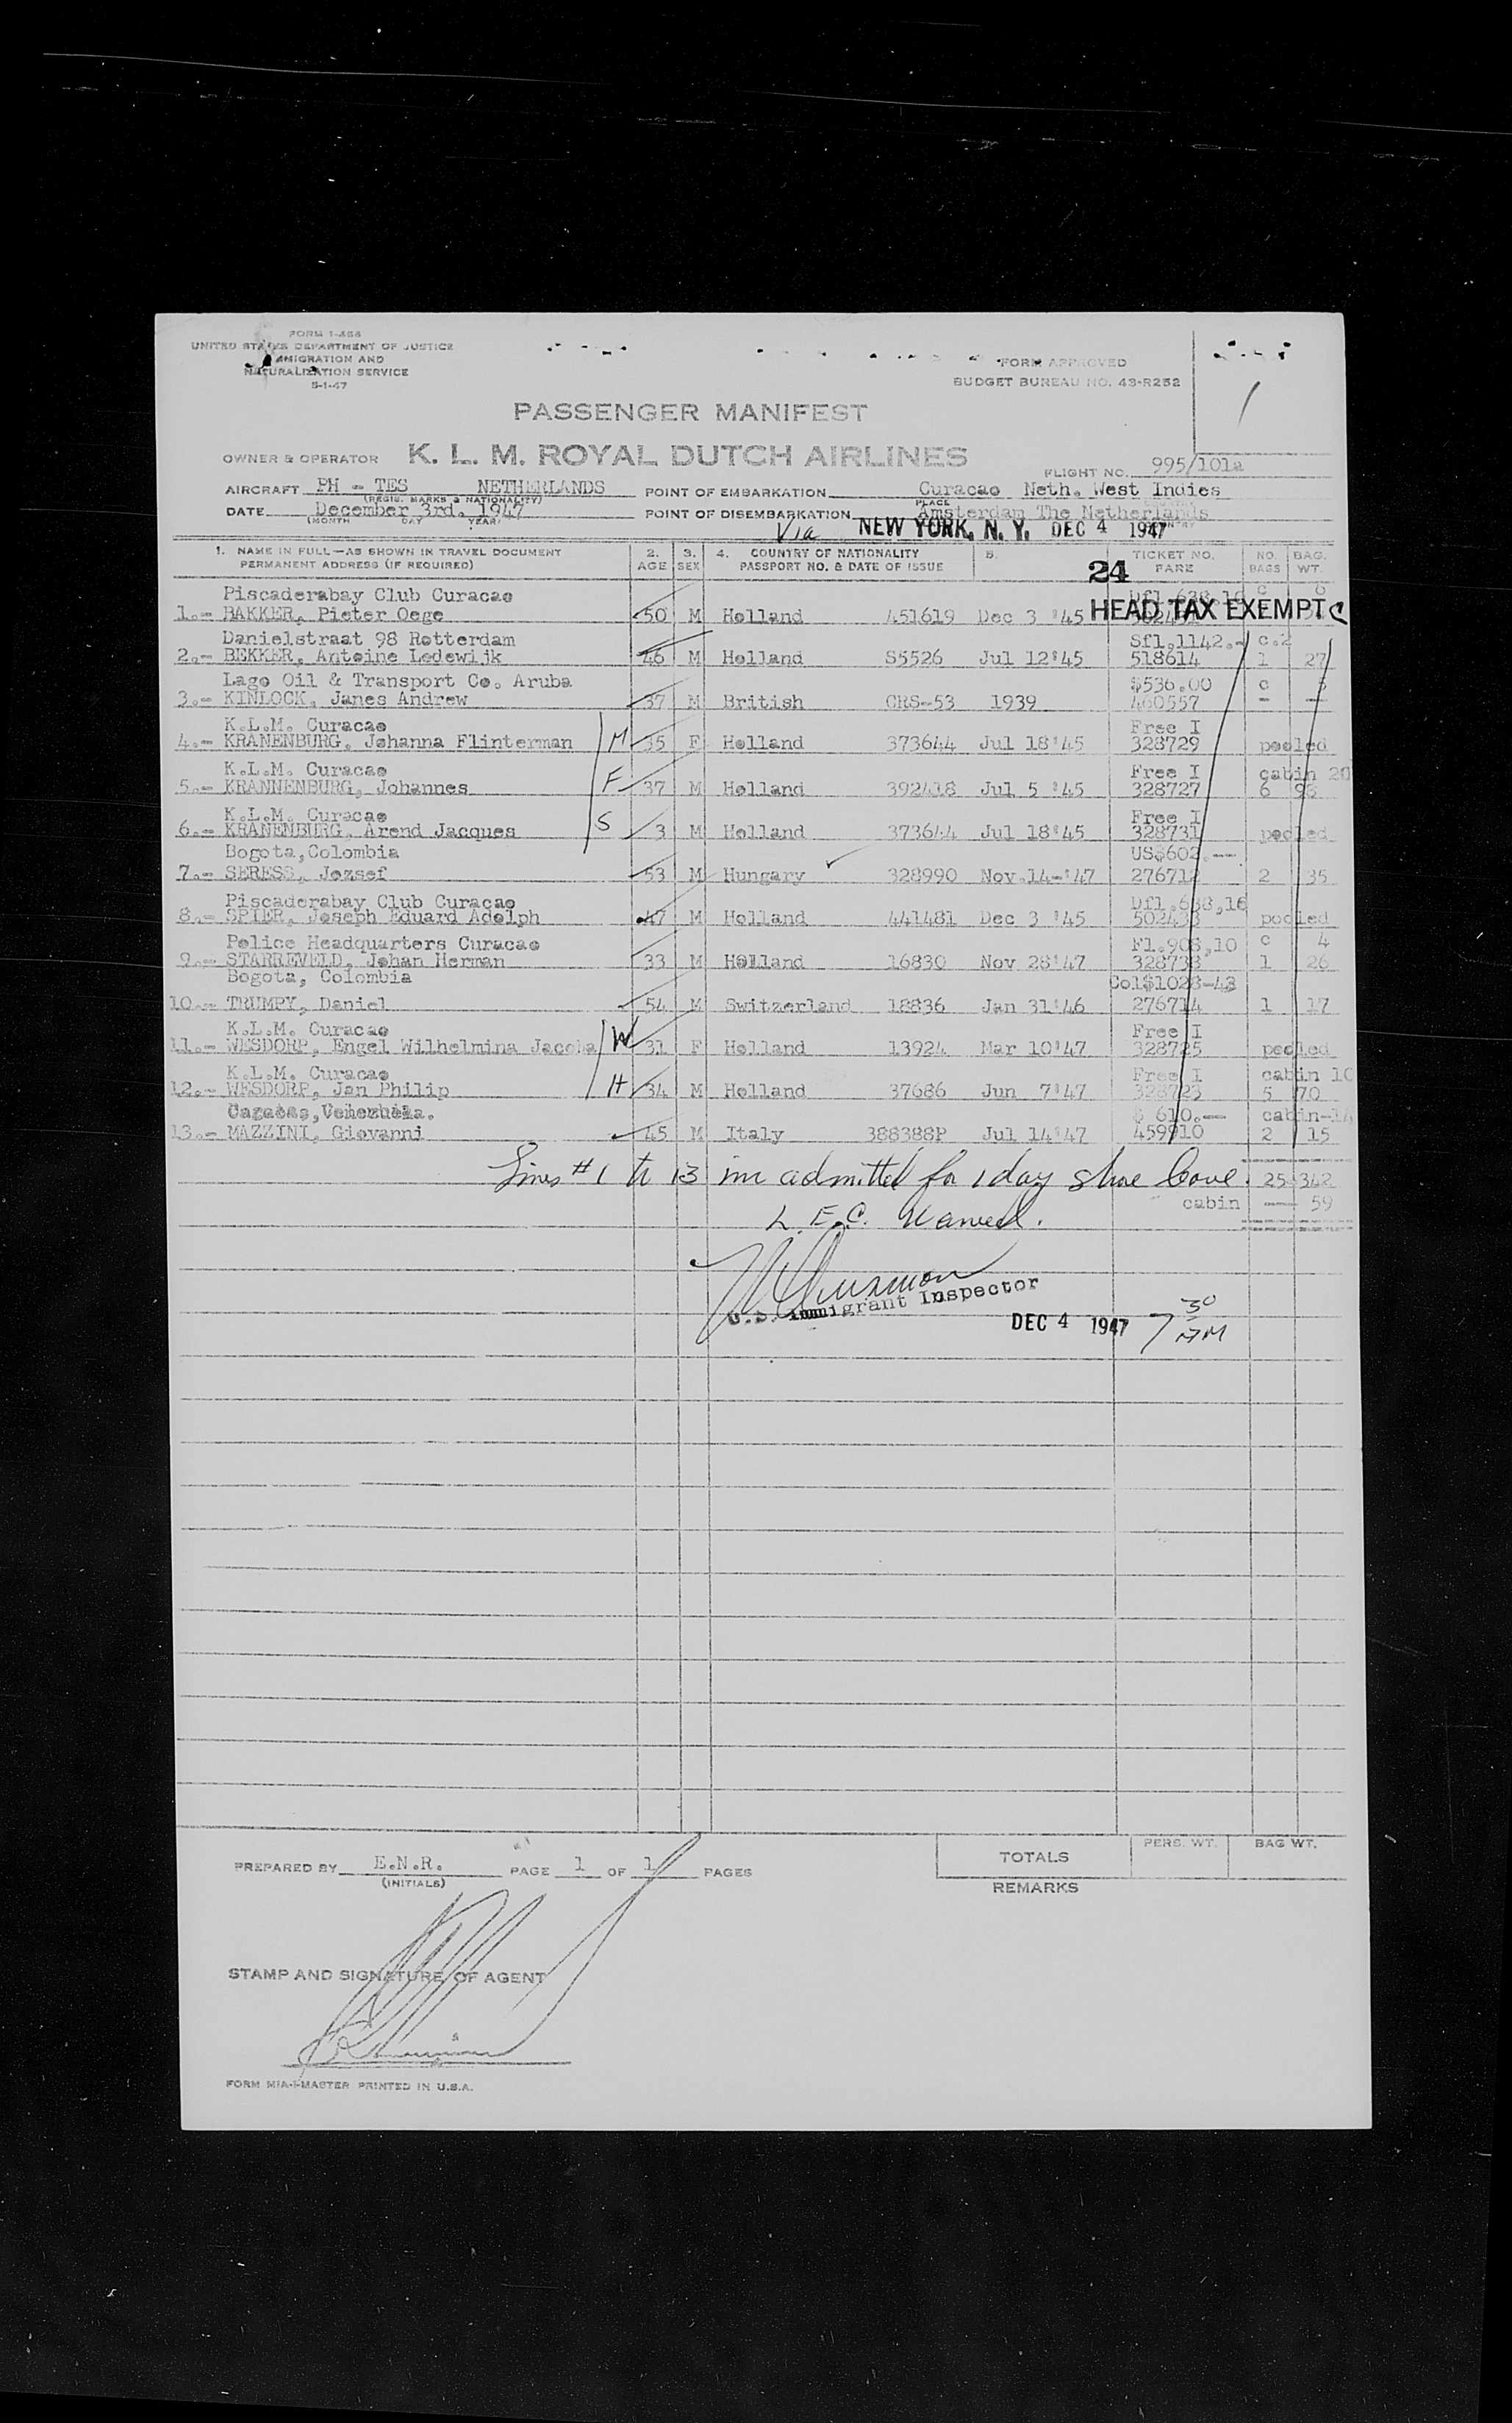 FORM I-466
UNITED STATES DEPARTMENT OF JUSTICE
IMMIGRATION AND
NATURALIZATION SERVICE
5-1-47
FORM APPROVED
BUDGET BUREAU NO. 43-R252
PASSENGER MANIFEST
OWNER & OPERATOR K. L. M. ROYAL DUTCH AIRLINES
FLIGHT NO. 995/101a
AIRCRAFT PH - TES NETHERLANDS POINT OF EMBARKATION Curacao Neth. West Indies
(REGIS. MARKS & NATIONALITY) PLACE
DATE December 3rd. 1947 POINT OF DISEMBARKATION Amsterdam The Netherlands
(MONTH DAY YEAR)
Via NEW YORK, N. Y. DEC 4 1947
1. NAME IN FULL—AS SHOWN IN TRAVEL DOCUMENT 2. 3. 4. COUNTRY OF NATIONALITY 5. TICKET NO. NO. BAG.
PERMANENT ADDRESS (IF REQUIRED) AGE SEX PASSPORT NO. & DATE OF ISSUE FARE BAGS WT.
24
Piscaderabay Club Curacao Dfl.638,16 c 6
1.- BAKKER, Pieter Oege 50 M Holland 451619 Dec 3 '45 HEAD TAX EXEMPT
Danielstraat 98 Rotterdam Sfl.1142.- c.2
2.- BEKKER, Antoine Lodewijk 46 M Holland S5526 Jul 12'45 518614 1 27
Lago Oil & Transport Co. Aruba $536.00 c 5
3.- KINLOCK, Janes Andrew 37 M British CRS-53 1939 460557 - -
K.L.M. Curacao Free I
4.- KRANENBURG, Johanna Flinterman M 35 F Holland 373644 Jul 18'45 328729 pooled
K.L.M. Curacao Free I cabin 20
5.- KRANNENBURG, Johannes F 37 M Holland 392418 Jul 5 '45 328727 6 98
K.L.M. Curacao Free I
6.- KRANENBURG, Arend Jacques S 3 M Holland 373644 Jul 18'45 328731 pooled
Bogota,Colombia US$602.--
7.- SERESS, Jozsef 53 M Hungary 328990 Nov.14-'47 276712 2 35
Piscaderabay Club Curacao Dfl.638,16
8.- SPIER, Joseph Eduard Adolph 47 M Holland 441481 Dec 3 '45 502433 pooled
Police Headquarters Curacao Fl.908,10 c 4
9.- STARREVELD, Johan Herman 33 M Holland 16830 Nov 28'47 328738 1 26
Bogota, Colombia Col$1028-43
10.- TRUMPY, Daniel 54 M Switzerland 18836 Jan 31'46 276714 1 17
K.L.M. Curacao Free I
11.- WESDORP, Engel Wilhelmina Jacoba W 31 F Holland 13924 Mar 10'47 328725 pooled
K.L.M. Curacao Free I cabin 10
12.- WESDORP, Jan Philip H 34 M Holland 37686 Jun 7'47 328723 5 70
Caracas,Venezuela. $ 610.— cabin-14
13.- MAZZINI, Giovanni 45 M Italy 388388P Jul 14'47 459910 2 15
Lines #1 to 13 inc admitted for 1 day shore leave. 25 342
cabin --- 59
L. E. C. Waived.
U.S. Immigrant Inspector
DEC 4 1947 7 30 AM
PREPARED BY E.N.R. PAGE 1 OF 1 PAGES
(INITIALS)
TOTALS PERS. WT. BAG WT.
REMARKS
STAMP AND SIGNATURE OF AGENT
FORM MIA-1-MASTER PRINTED IN U.S.A.